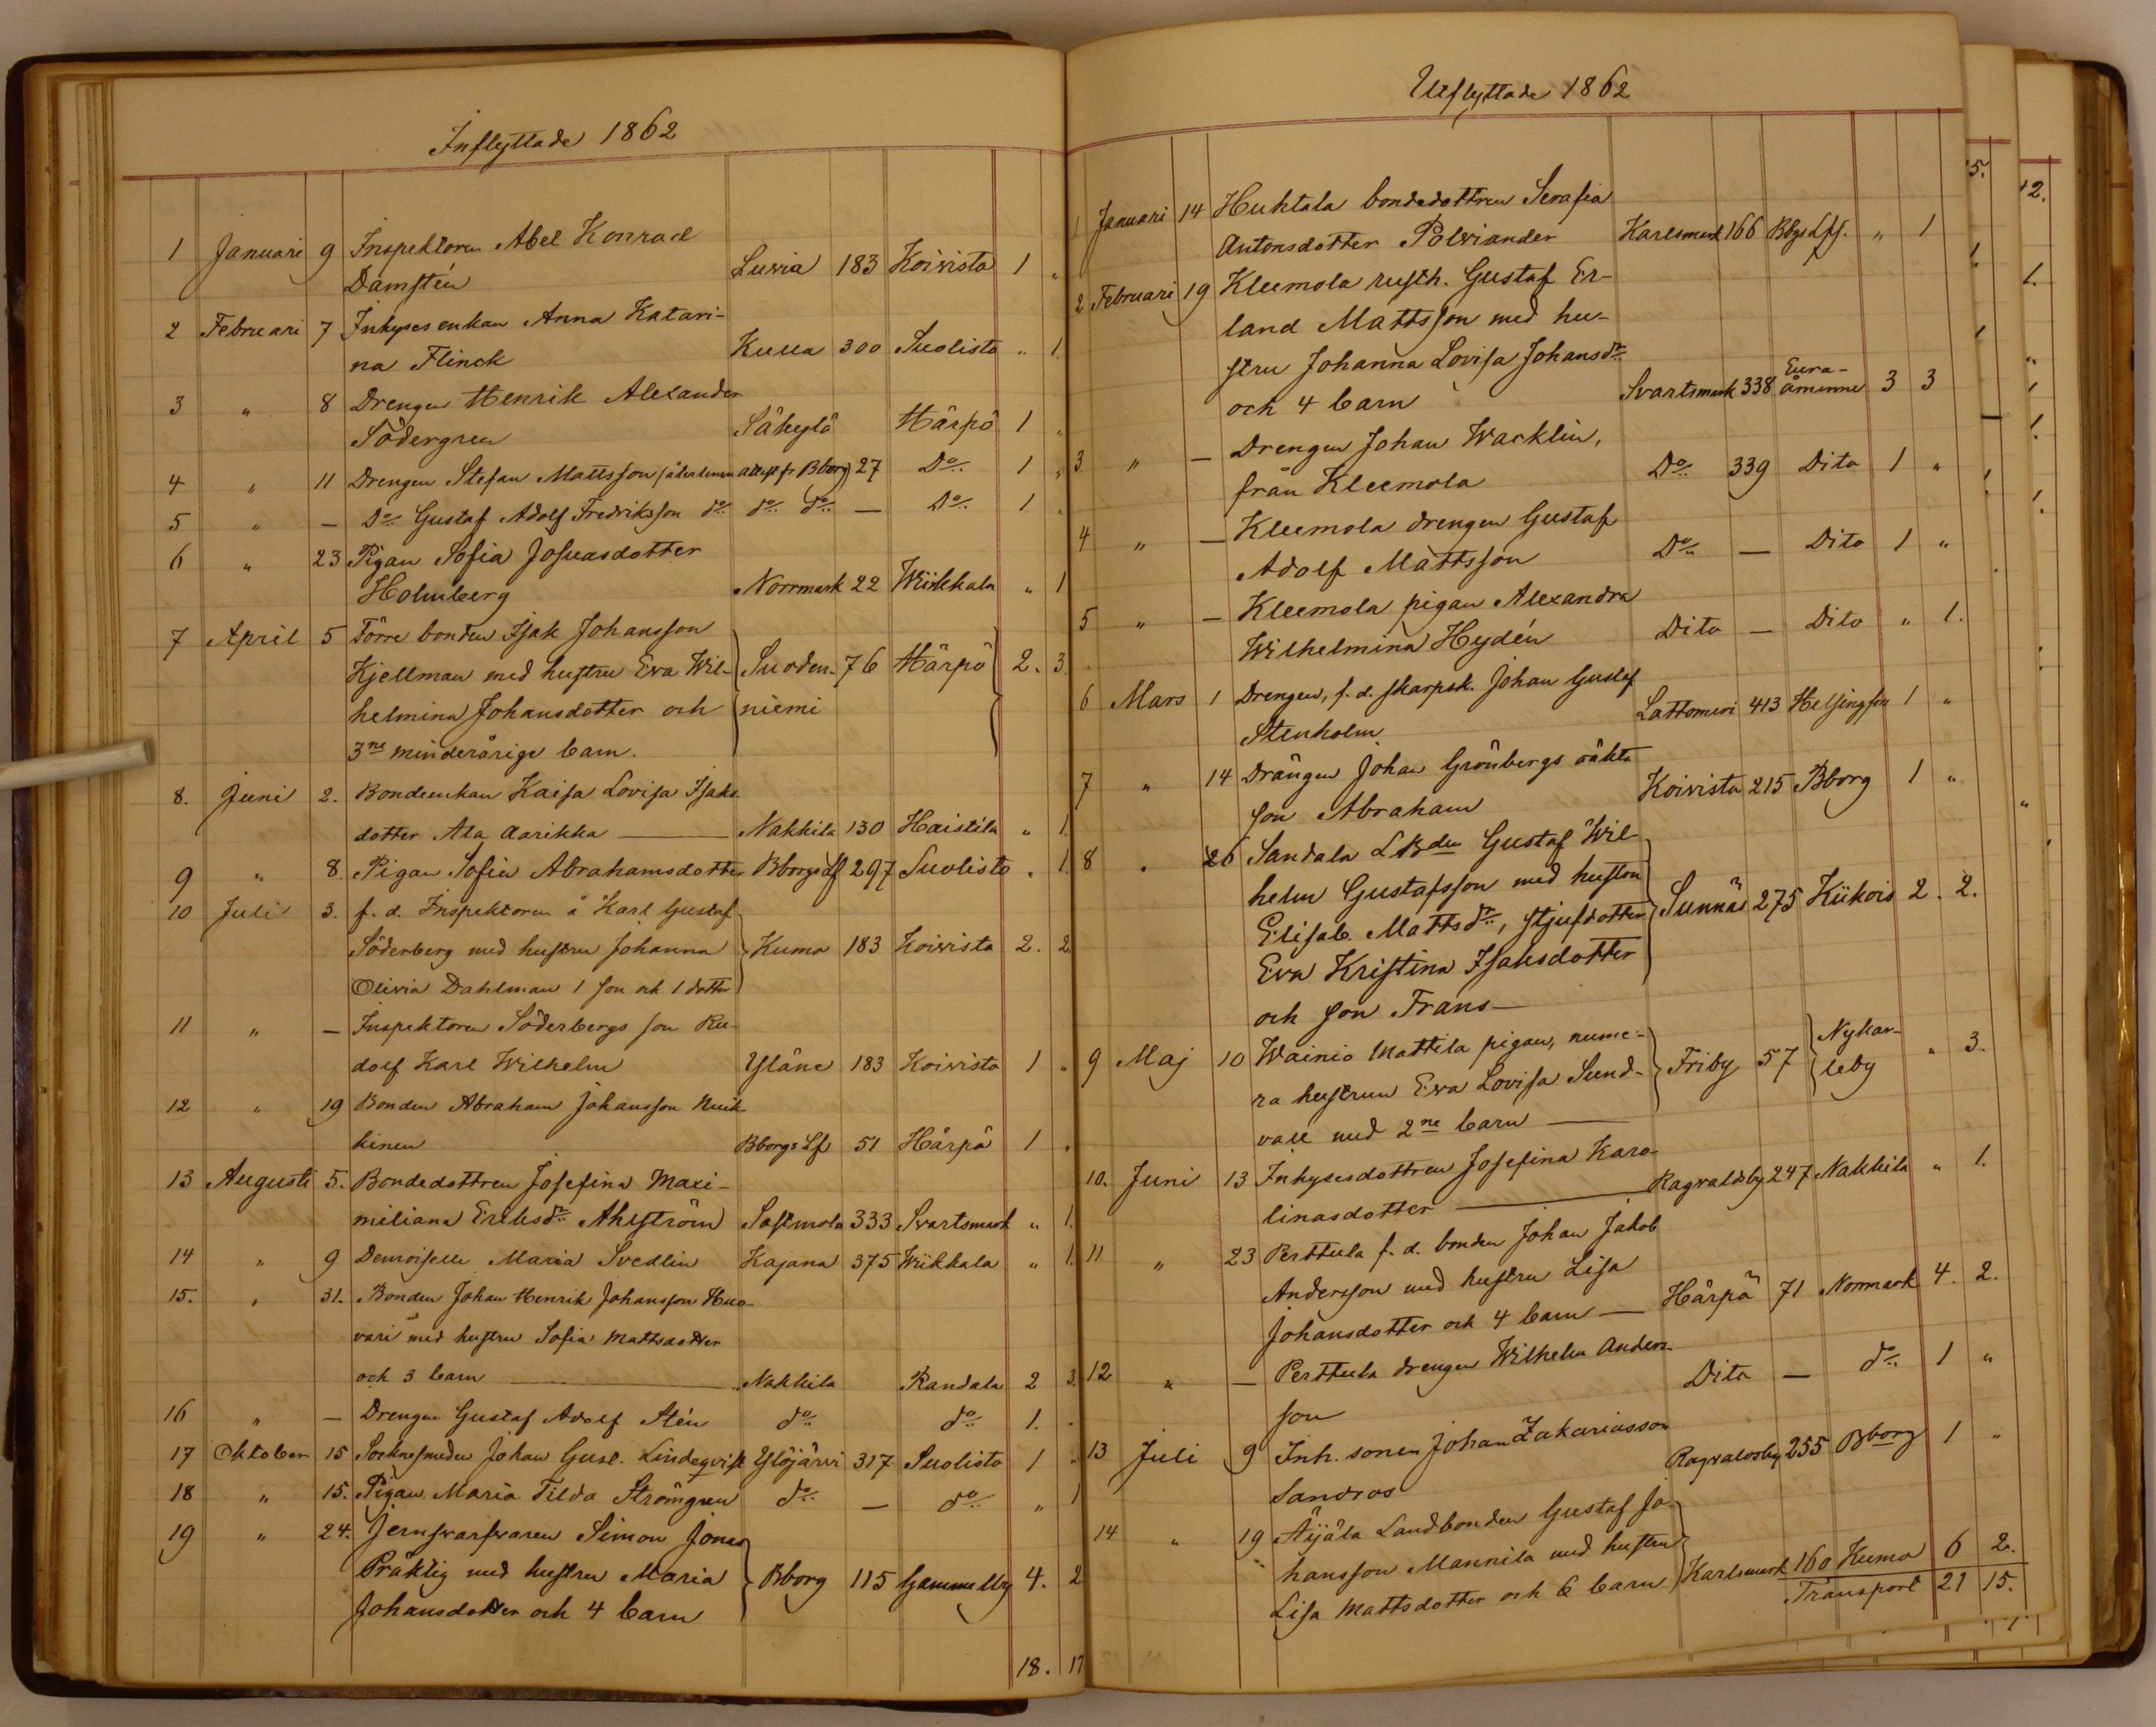 Inflyttade 1862
1 Januari 9 Inspektoren Abel Konrad
Damstén Luvia 183 Koivisto 1 "
2 Februari 7 Inhyses enkan Anna Katari-
na Flinck Kulla 300 Suolisto " 1.
3 " 8 Drengen Henrik Alexander
Södergren Säkylä Härpö 1 "
4 " 11 Drengen Stefan Mattsson (återlemn attest fr Bborg) 27 Do 1 "
5 " — Do Gustaf Adolf Fredriksson do do do — Do 1 "
6 " 23 Pigan Sofia Josuasdotter
Holmberg Norrmark 22 Wiikkala " 1
7 April 5 Förre bonden Isak Johansson
Kjellman med hustru Eva Wil- Suoden- 76 Härpö 2. 3
helmina Johansdotter och niemi
3ne minderårige barn.
8. Juni 2. Bondeenkan Kaisa Lovisa Isaks
dotter Ala Aarikka — Nakkila 130 Haistila " 1.
9 " 8. Pigan Sofia Abrahamsdotter Bborgs Lf 297 Suolisto " 1.
10 Juli 3. f. d. Inspektoren å Karl Gustaf
Söderberg med hustru Johanna Kumo 183 Koivisto 2. 2
Olivia Dahlman 1 son och 1 dotter
11 " — Inspektoren Söderbergs son Ru-
dolf Karl Wilhelm Yläne 183 Koivisto 1 "
12 " 19 Bonden Abraham Johansson
kinen Bborgs Lf 51 Härpö 1 "
13 Augusti 5. Bondedottren Josefina Maxi-
miliana Eriksdr Ahlström Sastmola 333 Svartsmark " 1.
14 " 9 Demoiselle Maria Svedlin Kajana 375 Wiikkala " 1.
15. " 31. Bonden Johan Henrik Johansson Huo-
vari med hustru Sofia Mattsdotter
och 3 barn — Nakkila Randala 2 3.
16 " — Drengen Gustaf Adolf Stén do do 1. "
17 Oktober 15 Socknesmeden Johan Gust. Lindeqvist Ylöjärvi 317 Suolisto 1 "
18 " 15. Pigan Maria Tilda Strömgren do — do " 1
19 " 24. Jernsvarfvaren Simon Jonas
Präktig med hustru Maria Bborg 115 Gammelby 4. 2
Johansdotter och 4 barn
18. 17
Utflyttade 1862
1 Januari 14 Huhtala bondedottren Serafia
Antonsdotter Polviander Karlsmark 166 Bbgs Lfs. " 1
2 Februari 19 Kleemola rusth. Gustaf Er-
land Mattsson med hu-
stru Johanna Lovisa Johansdr Eura-
och 4 barn Svartsmark 338 åminne 3 3
3 " — Drengen Johan Wacklin,
från Kleemola Do 339 Dito 1 "
4 " — Kleemola drengen Gustaf
Adolf Mattsson Do — Dito 1 "
5 " — Kleemola pigan Alexandra
Wilhelmina Hydén Dito — Dito " 1.
6 Mars 1 Drengen, f. d. skarpsk. Johan Gustaf
Stenholm Lattomeri 413 Helsingfors 1 "
7 " 14 Drängen Johan Grönbergs oäkta
son Abraham Koivisto 215 Bborg 1 "
8 " 26 Sandala LBden Gustaf Wil-
helm Gustafsson med hustru
Elisab. Mattsdr, stjufdotter Sunnäs 275 Kiikois 2. 2.
Eva Kristina Isaksdotter
och son Frans —
9 Maj 10 Wainio Mattila pigan, nume- Nykar-
ra hustrun Eva Lovisa Sund- Friby 57 leby " 3.
vall med 2ne barn —
10. Juni 13 Inhysesdottren Josefina Karo-
linasdotter — Ragvaldsby 247 Nakkila " 1.
11 " 23 Perttula f. d. bonden Johan Jakob
Andersson med hustru Lisa
Johansdotter och 4 barn — Härpö 71 Norrmark 4. 2.
12 " — Perttula drengen Wilhelm Anders-
son Dito — do 1 "
13 Juli 9 Inh. sonen Johan Zakariasson
Sandros Ragvaldsby 255 Bborg 1 "
14 " 19 Äijälä Landbonden Gustaf Jo-
hansson Mannila med hustru
Lisa Mattsdotter och 6 barn Karlsmark 160 Kumo 6 2.
Transport 21 15.